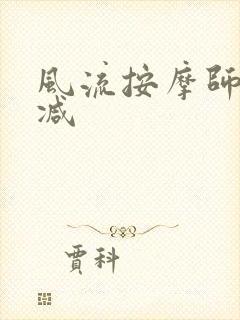 風流按摩師
減
賈科